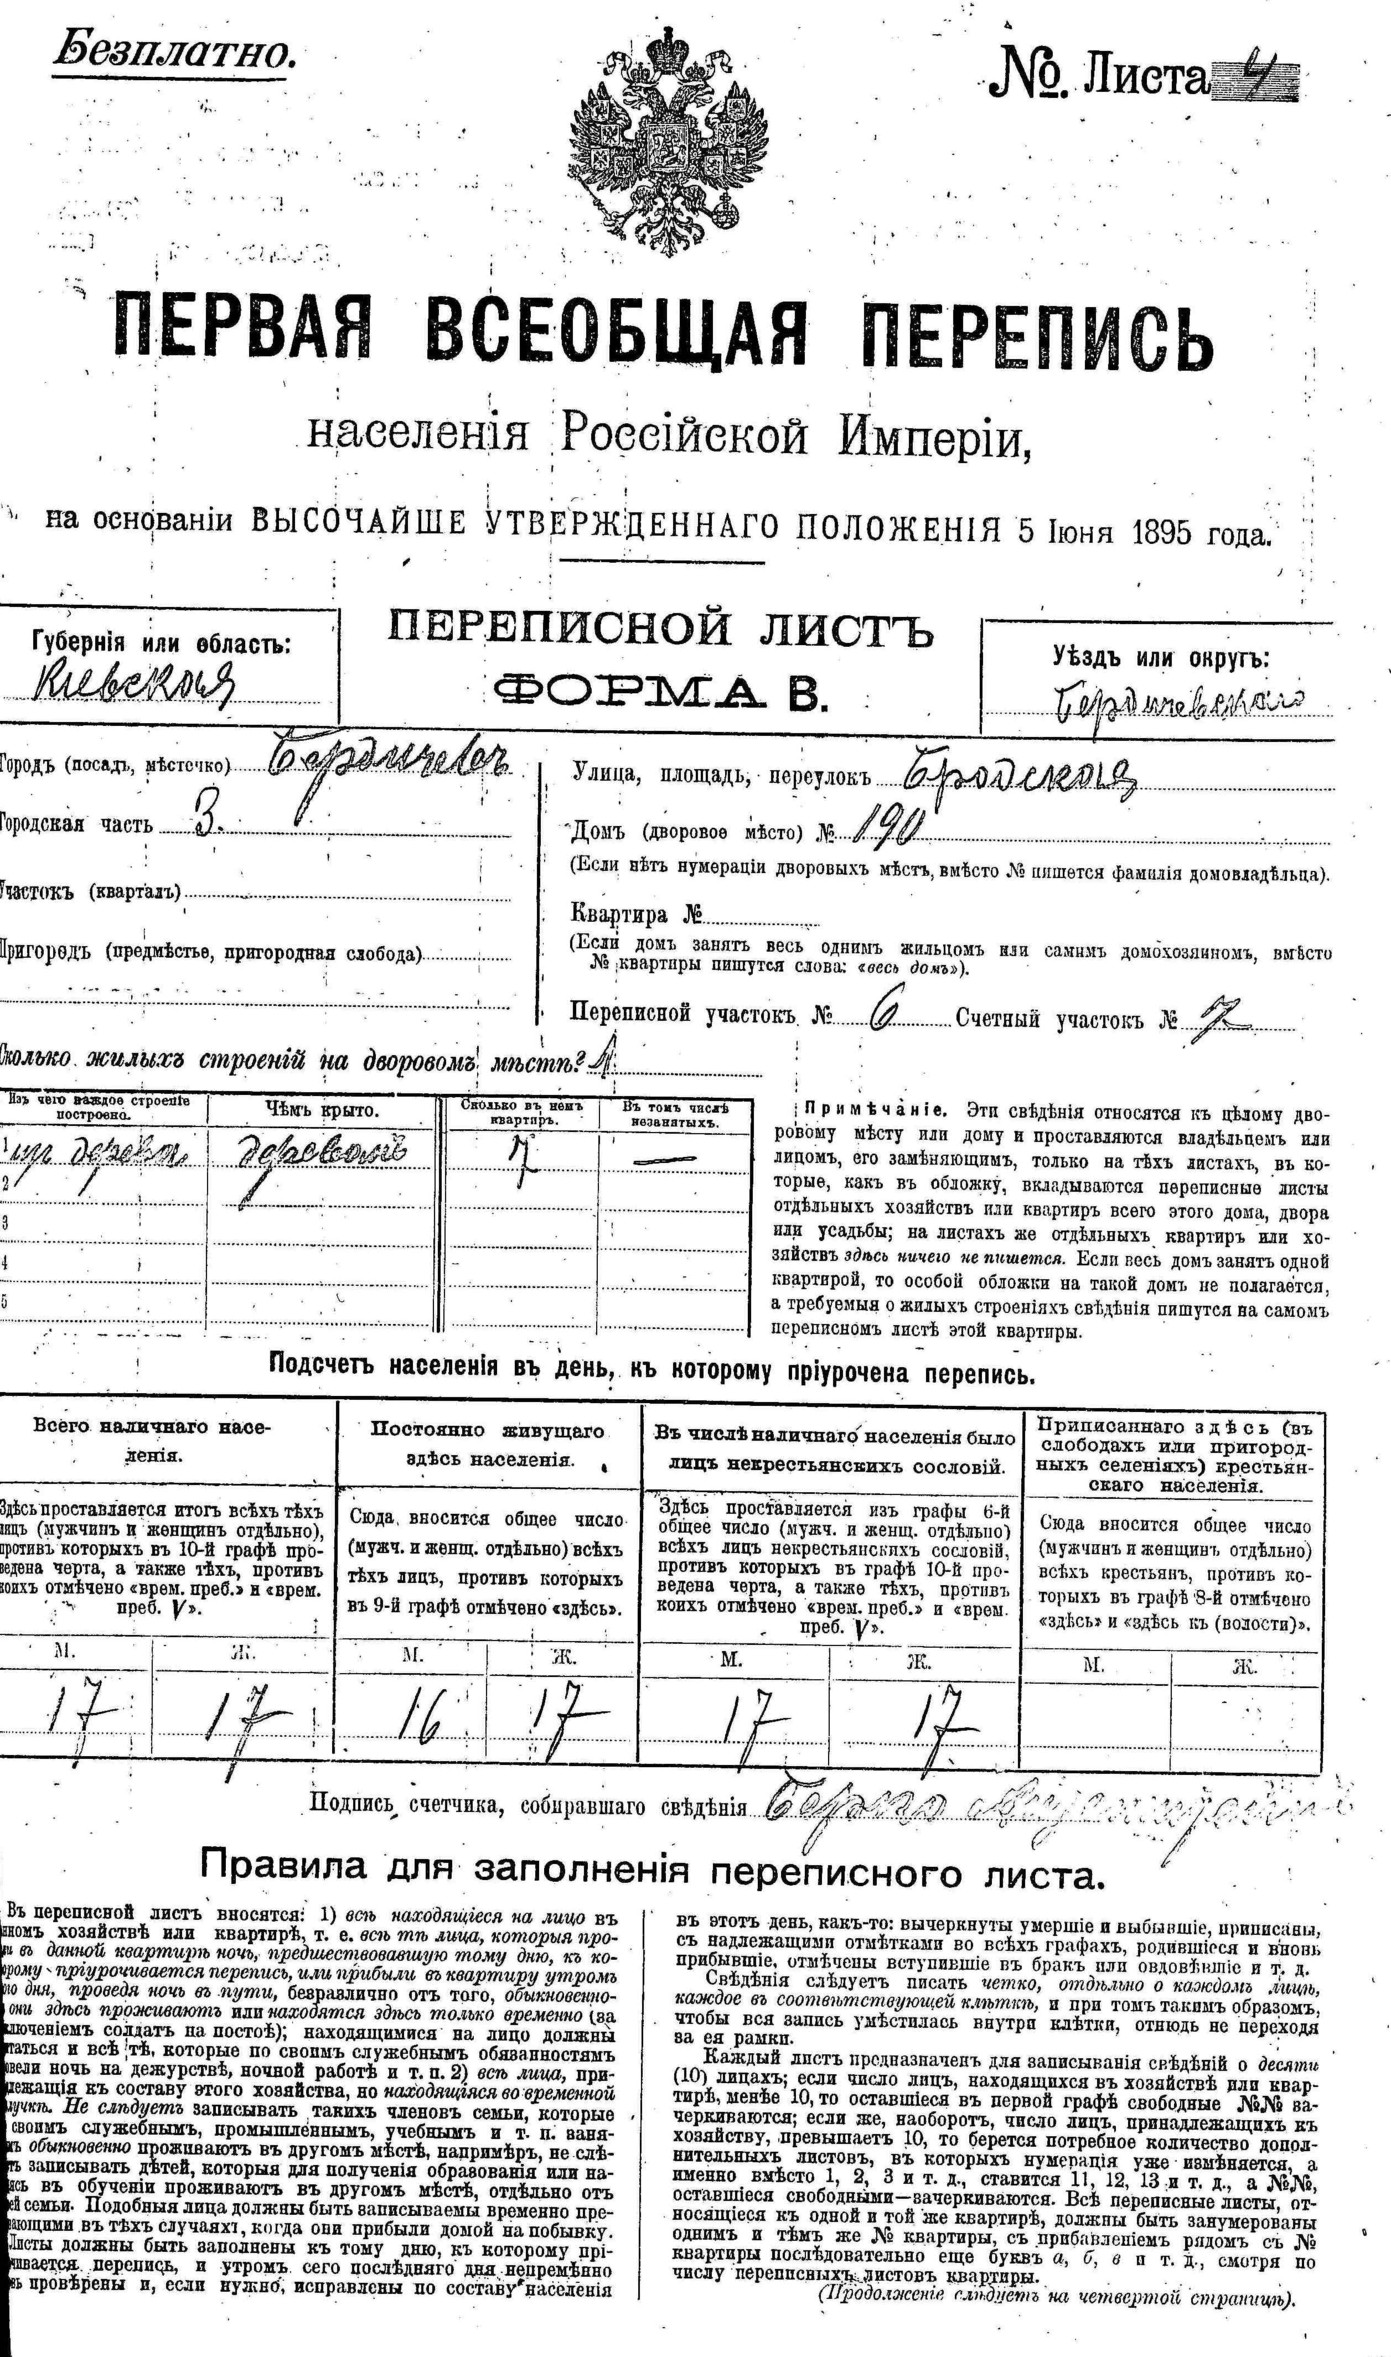 Безплатно.
№. Листа 4
ПЕРВАЯ ВСЕОБЩАЯ ПЕРЕПИСЬ
населенія Россійской Имперіи,
на основаніи ВЫСОЧАЙШЕ УТВЕРЖДЕННАГО ПОЛОЖЕНІЯ 5 Іюня 1895 года.
Губернія или область:
Киевская
ПЕРЕПИСНОЙ ЛИСТЪ
ФОРМА В.
Уѣздъ или округъ:
Бердичевскаго
Городъ (посадъ, мѣстечко) Бердичевъ
Городская часть 3.
Участокъ (кварталъ)
Пригородъ (предмѣстье, пригородная слобода)
Улица, площадь, переулокъ Бродская
Домъ (дворовое мѣсто) № 190
(Если нѣтъ нумераціи дворовыхъ мѣстъ, вмѣсто № пишется фамилія домовладѣльца).
Квартира №
(Если домъ занятъ весь однимъ жильцомъ или самимъ домохозяиномъ, вмѣсто
№ квартиры пишутся слова: «весь домъ»).
Переписной участокъ № 6 Счетный участокъ № 7
Сколько жилыхъ строеній на дворовомъ мѣстѣ?
Изъ чего каждое строеніе построено.
Чѣмъ крыто.
Сколько въ немъ квартиръ.
Въ томъ числѣ незанятыхъ.
1 изъ дерева деревомъ 7 —
2
3
4
5
Примѣчаніе. Эти свѣдѣнія относятся къ цѣлому дво-
ровому мѣсту или дому и проставляются владѣльцемъ или
лицомъ, его замѣняющимъ, только на тѣхъ листахъ, въ ко-
торые, какъ въ обложку, вкладываются переписные листы
отдѣльныхъ хозяйствъ или квартиръ всего этого дома, двора
или усадьбы; на листахъ же отдѣльныхъ квартиръ или хо-
зяйствъ здѣсь ничего не пишется. Если весь домъ занятъ одной
квартирой, то особой обложки на такой домъ не полагается,
а требуемыя о жилыхъ строеніяхъ свѣдѣнія пишутся на самомъ
переписномъ листѣ этой квартиры.
Подсчетъ населенія въ день, къ которому пріурочена перепись.
Всего наличнаго насе-
ленія.
Здѣсь проставляется итогъ всѣхъ тѣхъ
лицъ (мужчинъ и женщинъ отдѣльно),
противъ которыхъ въ 10-й графѣ про-
ведена черта, а также тѣхъ, противъ
коихъ отмѣчено «врем. преб.» и «врем.
преб. V».
М. Ж.
17 17
Постоянно живущаго
здѣсь населенія.
Сюда вносится общее число
(мужч. и женщ. отдѣльно) всѣхъ
тѣхъ лицъ, противъ которыхъ
въ 9-й графѣ отмѣчено «здѣсь».
М. Ж.
16 17
Въ числѣ наличнаго населенія было
лицъ некрестьянскихъ сословій.
Здѣсь проставляется изъ графы 6-й
общее число (мужч. и женщ. отдѣльно)
всѣхъ лицъ некрестьянскихъ сословій,
противъ которыхъ въ графѣ 10-й про-
ведена черта, а также тѣхъ, противъ
коихъ отмѣчено «врем. преб.» и «врем.
преб. V».
М. Ж.
17 17
Приписаннаго здѣсь (въ
слободахъ или пригород-
ныхъ селеніяхъ) крестьян-
скаго населенія.
Сюда вносится общее число
(мужчинъ и женщинъ отдѣльно)
всѣхъ крестьянъ, противъ ко-
торыхъ въ графѣ 8-й отмѣчено
«здѣсь» и «здѣсь къ (волости)».
М. Ж.
Подпись счетчика, собиравшаго свѣдѣнія
Правила для заполненія переписного листа.
Въ переписной листъ вносятся: 1) всѣ находящіеся на лицо въ
номъ хозяйствѣ или квартирѣ, т. е. всѣ тѣ лица, которыя про-
ли въ данной квартирѣ ночь, предшествовавшую тому дню, къ ко-
орому пріурочивается перепись, или прибыли въ квартиру утромъ
ого дня, проведя ночь въ пути, безразлично отъ того, обыкновенно-
они здѣсь проживаютъ или находятся здѣсь только временно (за
ключеніемъ солдатъ на постоѣ); находящимися на лицо должны
таться и всѣ тѣ, которые по своимъ служебнымъ обязанностямъ
овели ночь на дежурствѣ, ночной работѣ и т. п. 2) всѣ лица, при-
лежащія къ составу этого хозяйства, но находящіяся во временной
лучкѣ. Не слѣдуетъ записывать такихъ членовъ семьи, которые
своимъ служебнымъ, промышленнымъ, учебнымъ и т. п. заня-
мъ обыкновенно проживаютъ въ другомъ мѣстѣ, напримѣръ, не слѣ-
тъ записывать дѣтей, которыя для полученія образованія или на-
ясь въ обученіи проживаютъ въ другомъ мѣстѣ, отдѣльно отъ
ей семьи. Подобныя лица должны быть записываемы временно пре-
вающими въ тѣхъ случаяхъ, когда они прибыли домой на побывку.
Листы должны быть заполнены къ тому дню, къ которому прі-
чивается перепись, и утромъ сего послѣдняго дня непремѣнно
ть провѣрены и, если нужно, исправлены по составу населенія
въ этотъ день, какъ-то: вычеркнуты умершіе и выбывшіе, приписаны,
съ надлежащими отмѣтками во всѣхъ графахъ, родившіеся и вновь
прибывшіе, отмѣчены вступившіе въ бракъ или овдовѣвшіе и т. д.
Свѣдѣнія слѣдуетъ писать четко, отдѣльно о каждомъ лицѣ,
каждое въ соотвѣтствующей клѣткѣ, и при томъ такимъ образомъ,
чтобы вся запись умѣстилась внутри клѣтки, отнюдь не переходя
за ея рамки.
Каждый листъ предназначенъ для записыванія свѣдѣній о десяти
(10) лицахъ; если число лицъ, находящихся въ хозяйствѣ или квар-
тирѣ, менѣе 10, то оставшіеся въ первой графѣ свободные №№ за-
черкиваются; если же, наоборотъ, число лицъ, принадлежащихъ къ
хозяйству, превышаетъ 10, то берется потребное количество допол-
нительныхъ листовъ, въ которыхъ нумерація уже измѣняется, а
именно вмѣсто 1, 2, 3 и т. д., ставится 11, 12, 13 и т. д., а №№,
оставшіеся свободными—зачеркиваются. Всѣ переписные листы, от-
носящіеся къ одной и той же квартирѣ, должны быть занумерованы
однимъ и тѣмъ же № квартиры, съ прибавленіемъ рядомъ съ №
квартиры послѣдовательно еще буквъ а, б, в и т. д., смотря по
числу переписныхъ листовъ квартиры.
(Продолженіе слѣдуетъ на четвертой страницѣ).